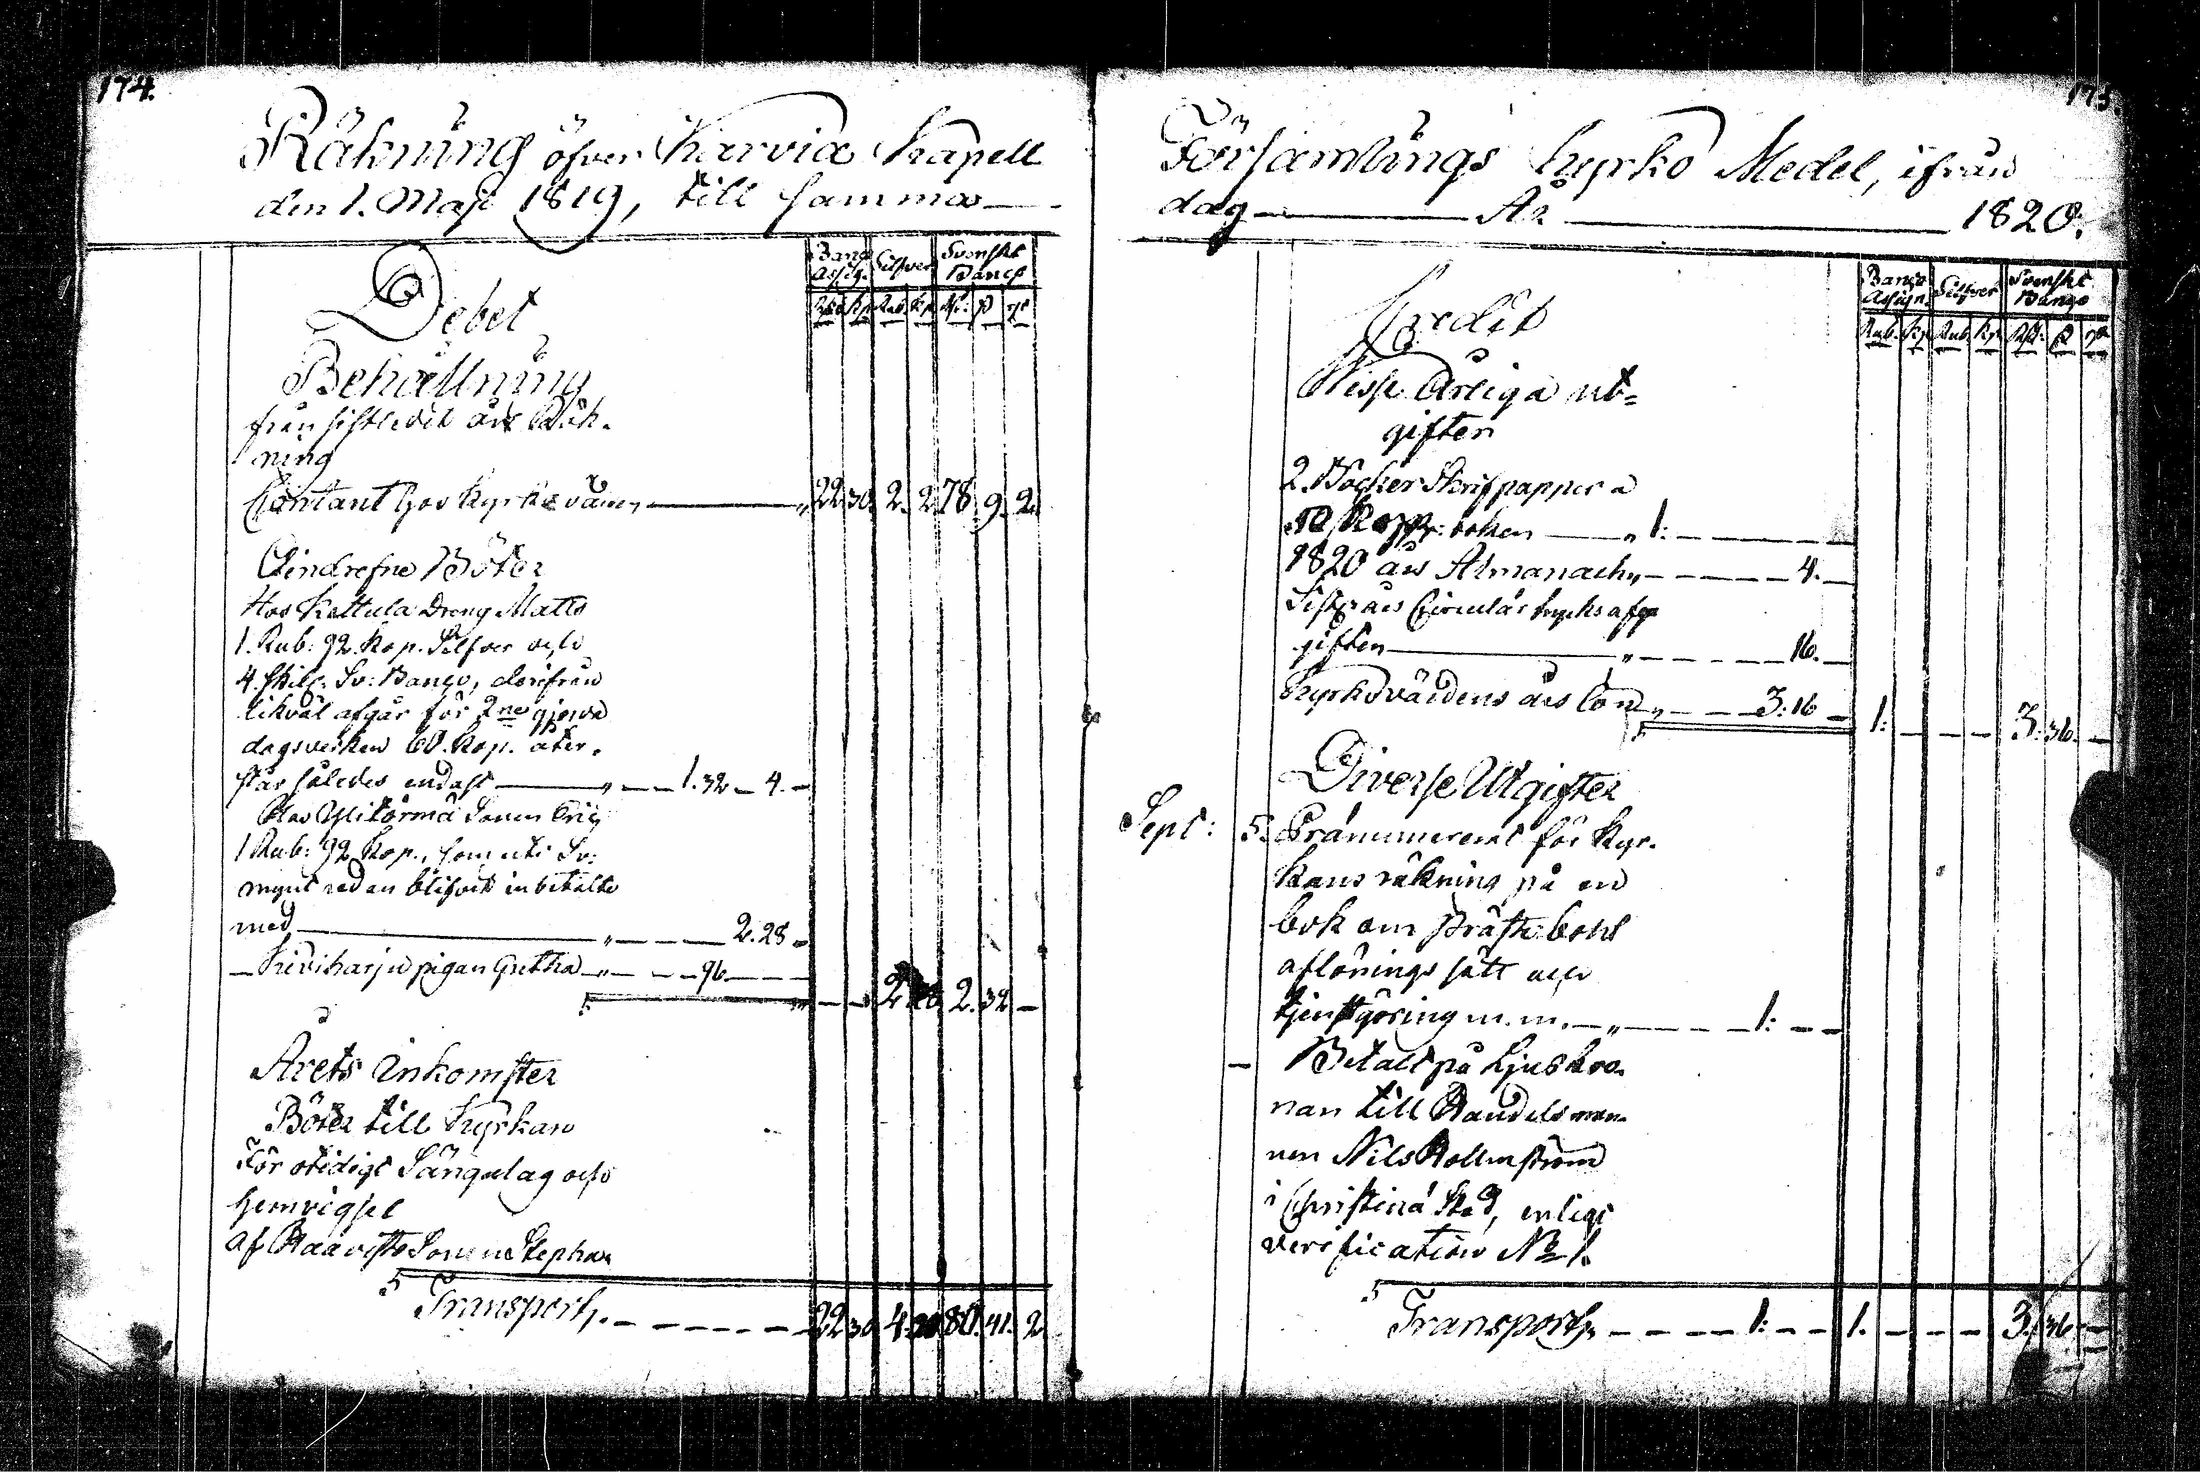 174.
Räkning öfver Karvia Kapell
den 1. Maji 1819, till samma
Debet
Banco Assig. Silfver Svenskt Banco
Rub. Kp. Rub. Kp. Rd: ß rst
Behållning
från sistledit års Räk-
ning
Contant hos Kyrkovärden „ 22 30. 2. 2 78. 9. 2.
Oindrefne Böter
Hos Kattula Dreng Matts
1. Rub: 92. Kop. Silfver och
4. skill. Sv: Banco, derifrån
likväl afgår för 2ne gjorda
dagsverken 60. Kop. åter-
står således endast „ 1. 32 4.
Hos Ylitörmä Sonen Eric
1 Rub: 92 Kop., som uti Sv:
mynt redan blifvit inbetalte
med „ 2. 28
Kiviharju pigan Gretha „ 96
2 2. 32
Årets Inkomster
Böter till Kyrkan
För otidigt Sängelag och
hemvigsel
af Haavisto Sonen Stephan
Transport. 22 30. 4. 80. 41. 2
175.
Församlings Kyrko Medel, ifrån
dag År 1820.
Credit
Banco Assign. Silfver Svenskt Banco
Rub. Kp. Rub. Kp. Rd: ß rst
Visse Årliga ut-
gifter
2. Böcker Skrifpapper a
50 Kopp: boken „ 1:
1820 års Almanach „ 4.
Sistl. års Circulär trycks af-
giften „ 16.
Kyrkovärdens års lön „ 3: 16 1: 3: 36.
Diverse Utgifter
Sept: 5. Pränumererat för Kyr-
kans räkning på en
bok om Prästerbohl
aflönings sätt och
tjenstgöring m. m. „ 1:
Betalt på Ljuskro-
nan till Handelsman-
nen Nils Holmström
i Christina Stad, enligt
verification No 1.
Transport „ 1: 1. 3. 36.